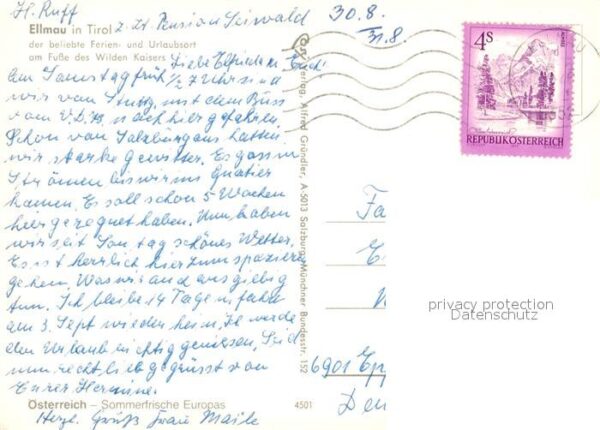 H. Ruff
z. Zt. Pension Seiwald
30.8.
31.8.
Ellmau in Tirol
der beliebte Ferien- und Urlaubsort
am Fuße des Wilden Kaisers
Liebe Elfriede u. Erich!
Am Samstag früh 1/2 7 Uhr sind
wir von Stuttg. mit dem Buss
vom V.D.K nach hier gefahren.
Schon von Salzburg aus hatten
wir starke gewitter. Es goss in
Strömen bis wir ins Quatier
kamen. Es soll schon 5 Wochen
hier geregnet haben. Nun haben
wir seit Sontag schönes Wetter.
Es ist herrlich hier zum spazieren
gehen. Was wir auch ausgiebig
tun. Ich bleibe 14 Tage u. fahre
am 3. Sept wieder heim. Ich werde
den Urlaub richtig geniesen. Seid
nun recht lieb gegrüsst von
Eurer Hermine.
Österreich – Sommerfrische Europas
4501
Herzl. Grüß Frau Maile
Verlag, Alfred Gründler, A-5013 Salzburg, Münchner Bundesstr. 152
4S
REPUBLIK ÖSTERREICH
Fa
6901 Epp
privacy protection
Datenschutz